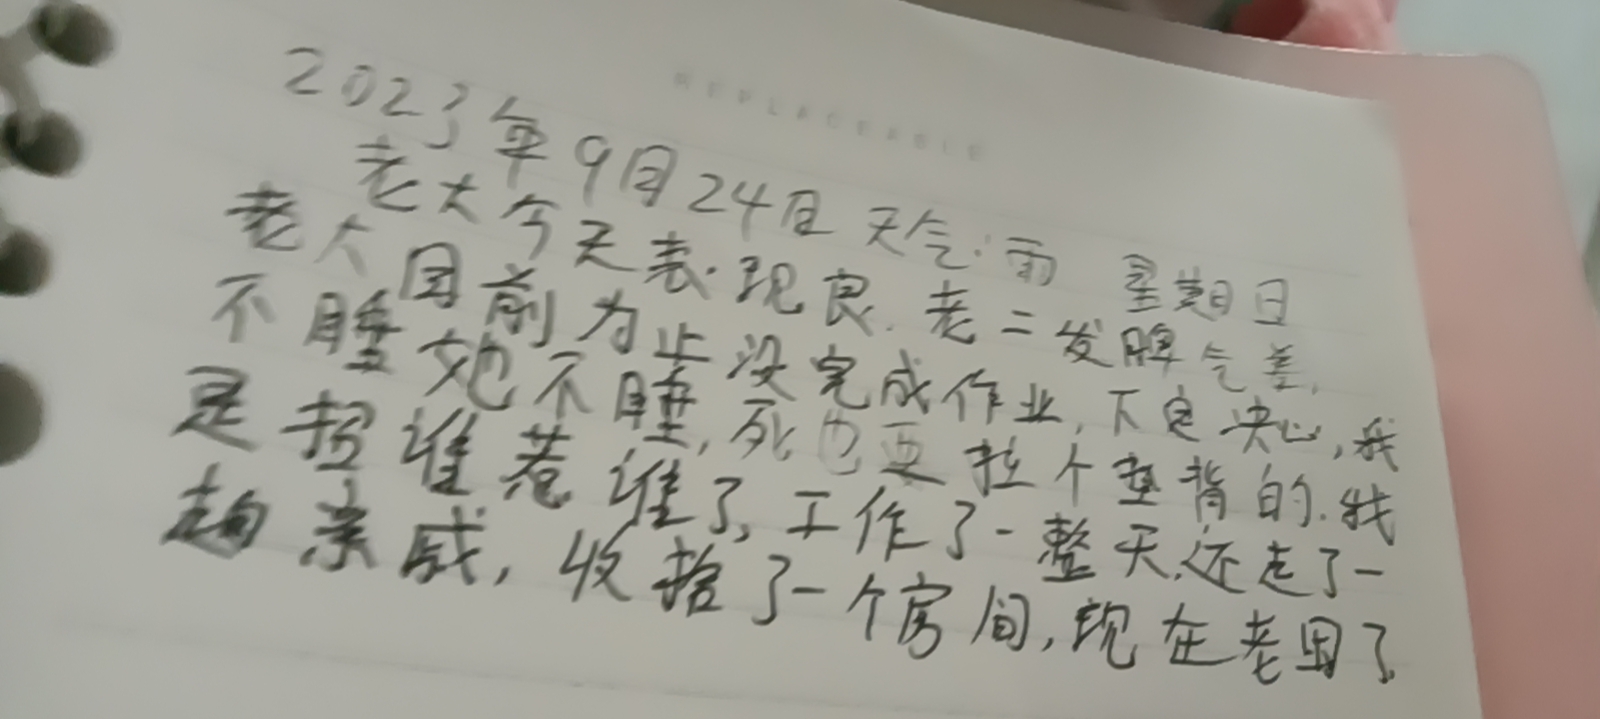 REPLACEABLE
2023年9月24日 天气:雨 星期日
老大今天表现良.老二发脾气差,
老大目前为止没完成作业,下定决心,我
不睡她不睡,死也要拉个垫背的.我
是招谁惹谁了,工作了一整天,还走了一
趟亲戚,收拾了一个房间,现在老困了